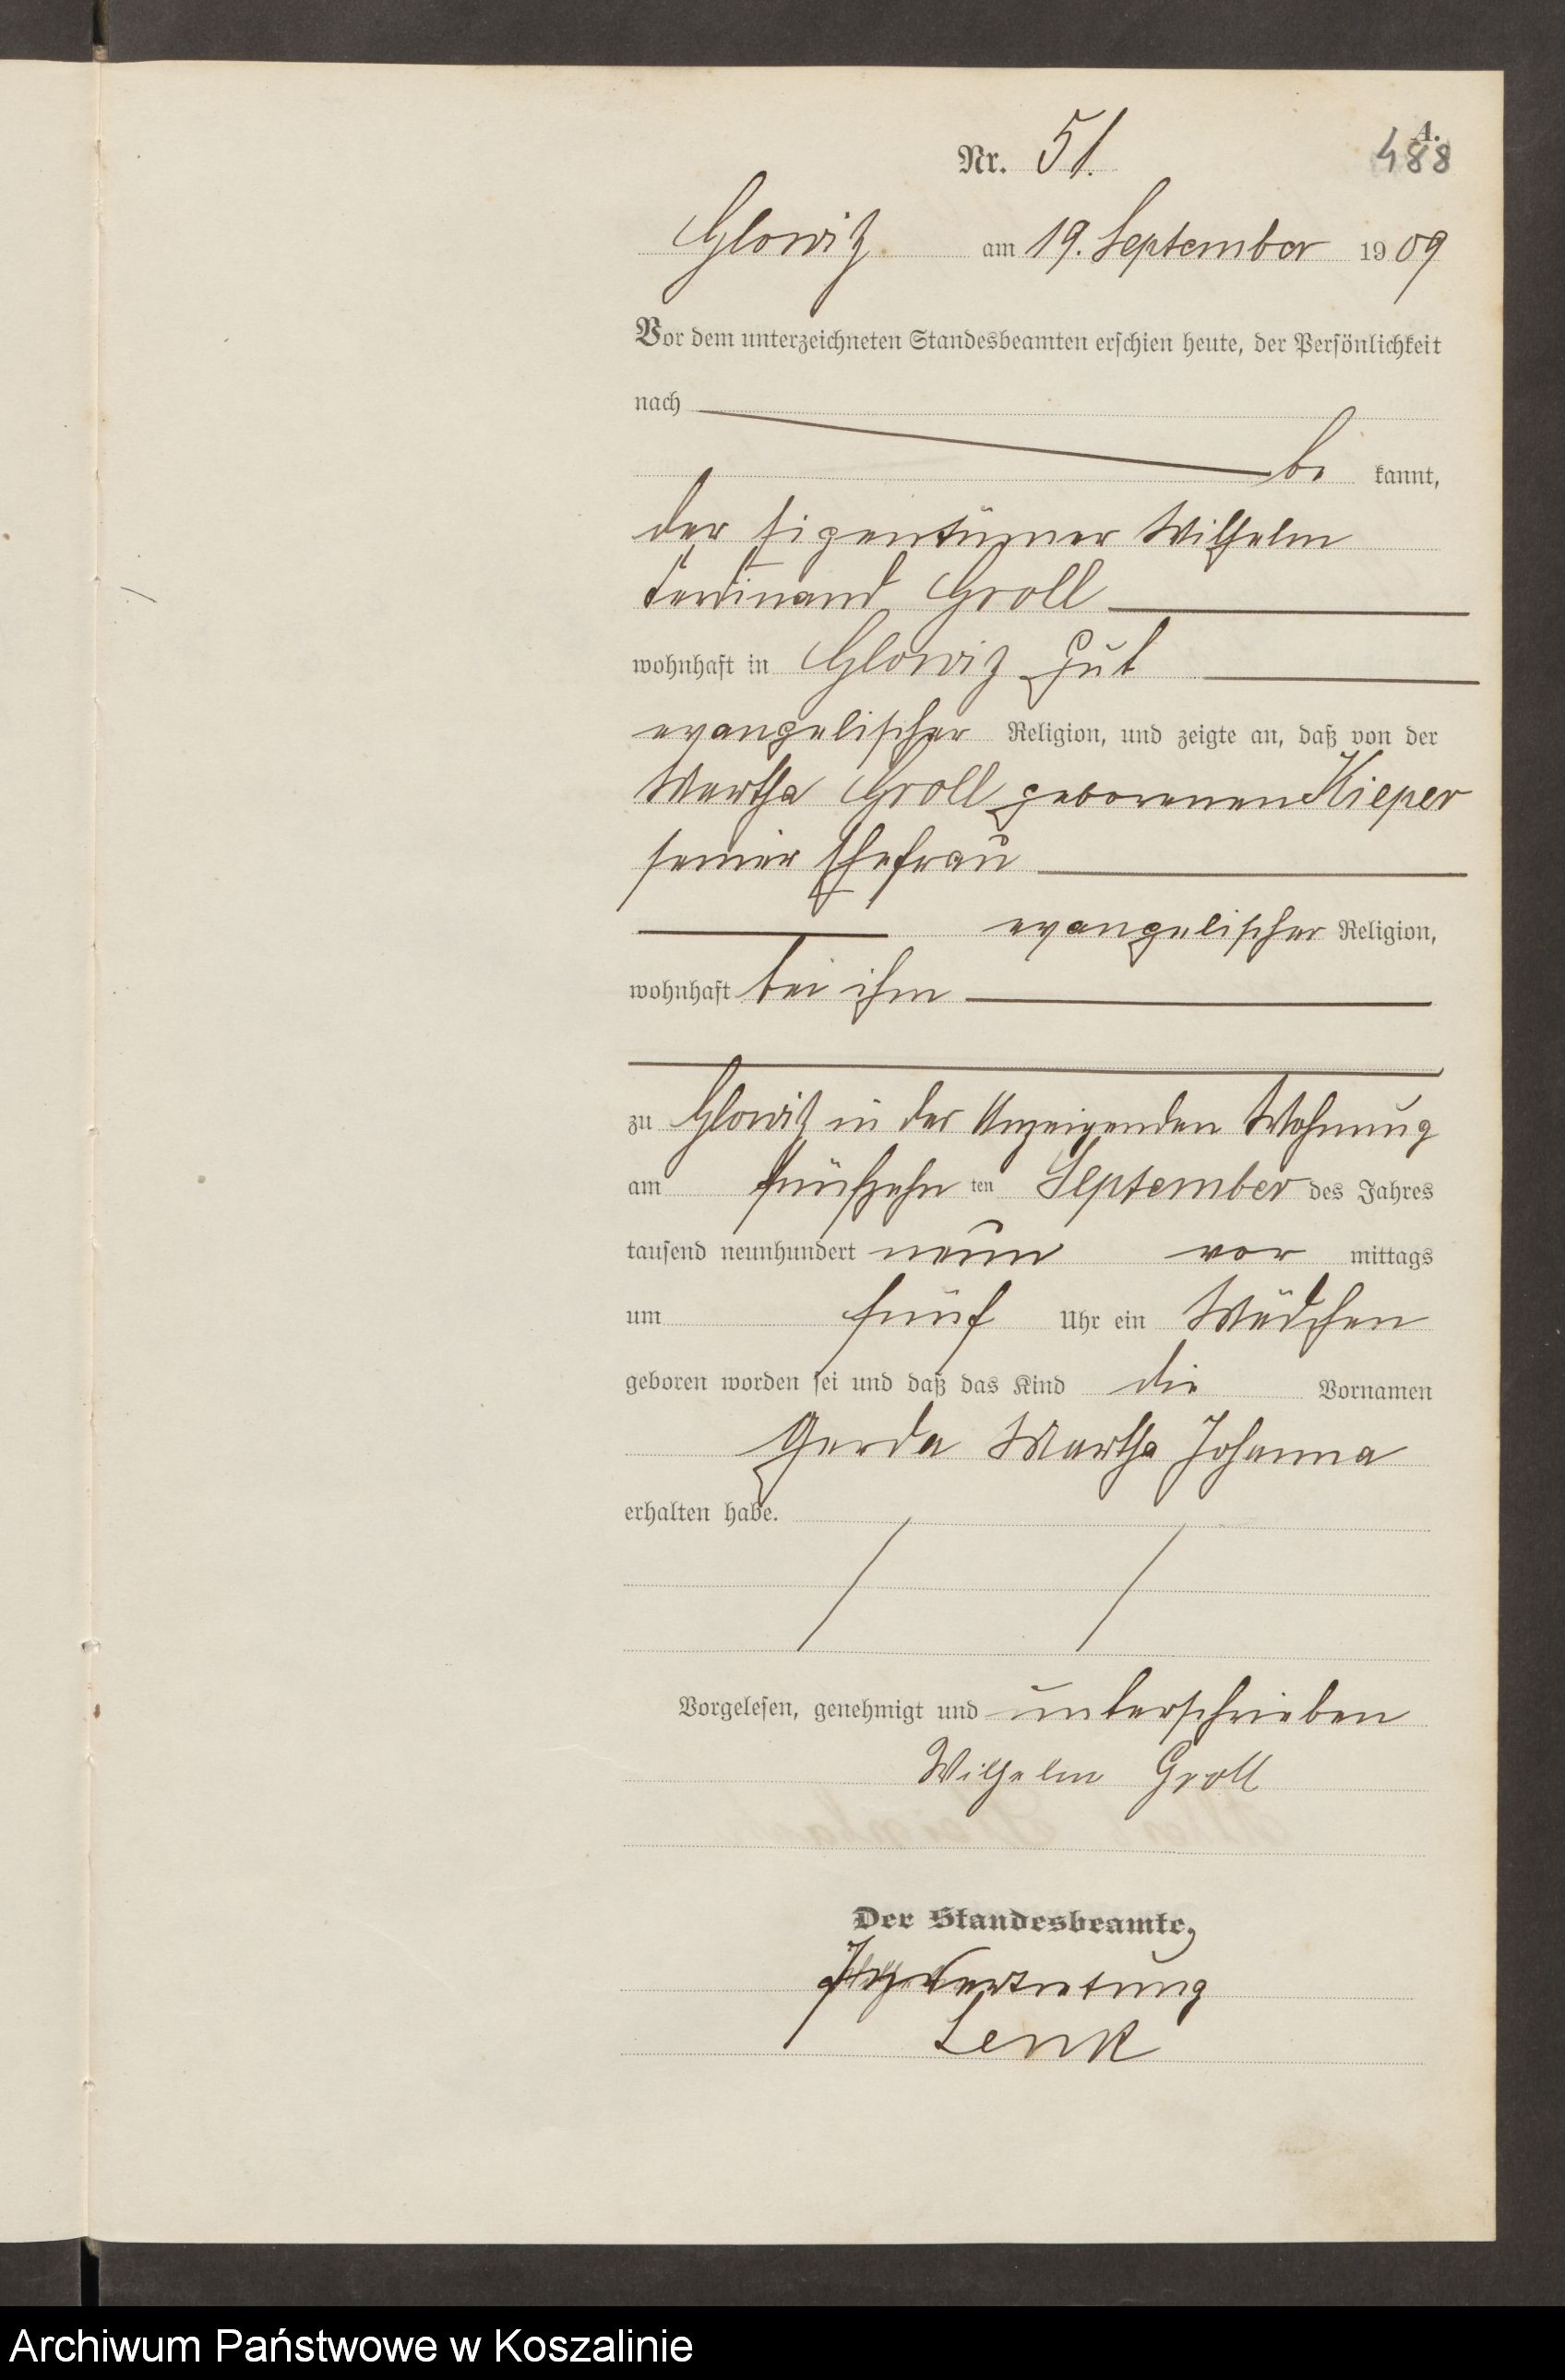 A.
488
Nr. 51.
Glowitz am 19. September 1909
Vor dem unterzeichneten Standesbeamten erschien heute, der Persönlichkeit
nach
be kannt,
der Eigentümer Wilhelm
Ferdinand Groll
wohnhaft in Glowitz Gut
evangelischer Religion, und zeigte an, daß von der
Martha Groll geborenen Kieper
seiner Ehefrau
evangelischer Religion,
wohnhaft bei ihm
zu Glowitz in der Anzeigenden Wohnung
am fünfzehn ten September des Jahres
tausend neunhundert neun vor mittags
um fünf Uhr ein Mädchen
geboren worden sei und daß das Kind die Vornamen
Gerda Martha Johanna
erhalten habe.
Vorgelesen, genehmigt und unterschrieben
Wilhelm Groll
Der Standesbeamte,
In Vertretung
Lenk
Archiwum Państwowe w Koszalinie